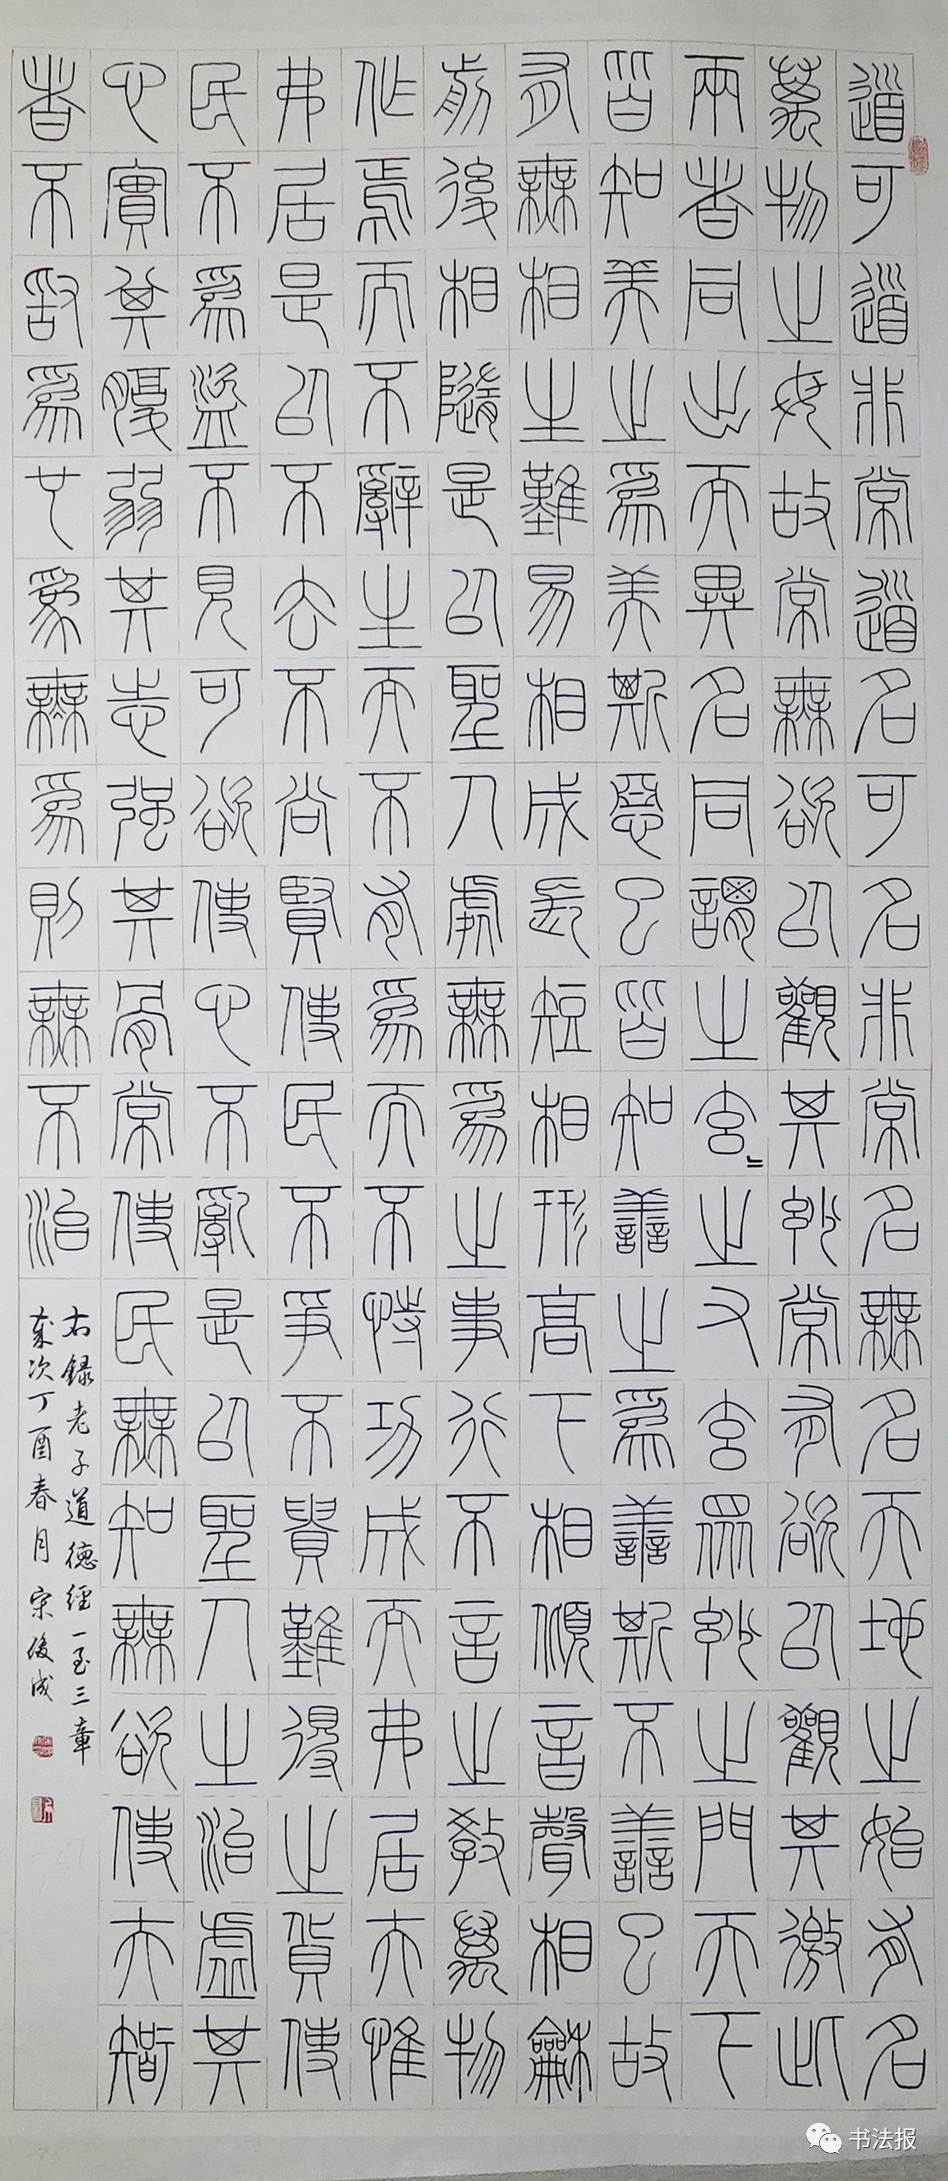 道可道非常道名可名非常名無名天地之始有名
萬物之母故常無欲以觀其妙常有欲以觀其徼此
兩者同出而異名同謂之玄〻之又玄眾妙之門天下
皆知美之為美斯惡已皆知善之為善斯不善已故
有無相生難易相成長短相形高下相傾音聲相龢
前後相隨是以聖人處無為之事行不言之教萬物
作焉而不辭生而不有為而不恃功成而弗居夫惟
弗居是以不去不尚賢使民不爭不貴難得之貨使
民不為盜不見可欲使心不亂是以聖人之治虛其
心實其腹弱其志強其骨常使民無知無欲使夫智
者不敢為也為無為則無不治
右錄老子道德經一至三章
歲次丁酉春月宋俊成
书法报